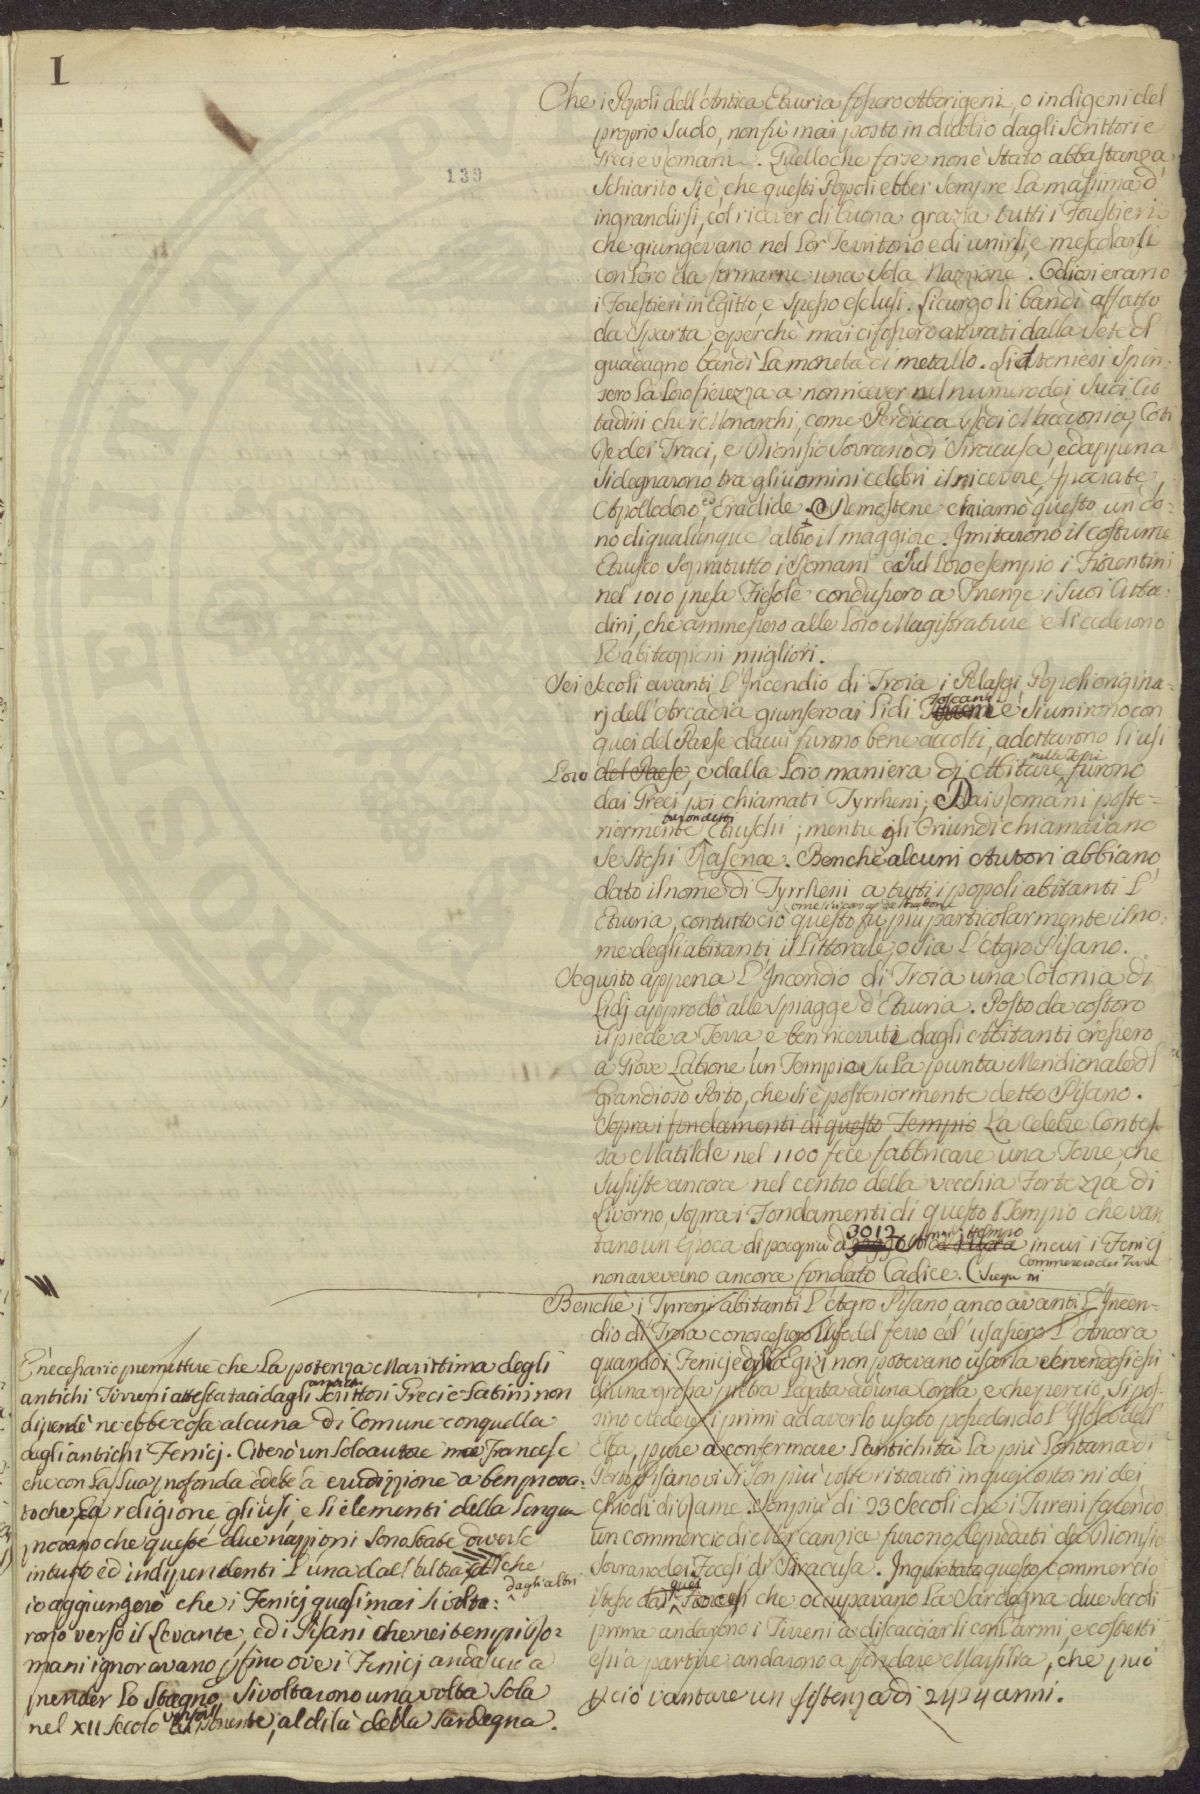 I
139
Che i Popoli dell'Antica Etruria fossero Aborigeni, o indigeni del
proprio Suolo, non fù mai posto in dubbio dagli Scrittori e
Greci e Romani. Quello che forse non è stato abbastanza
Schiarito si è, che questi Popoli ebber sempre la massima d'
ingrandirsi, col ricever di buona grazia tutti i Forestieri
che giungevano nel lor Territorio e di unirsi, e mescolarsi
con loro da formarne una sola Nazzione. Odiosi erano
i Forestieri in Egitto, e spesso esclusi. Licurgo li bandì affatto
da Sparta, e perchè mai ci fossero attirati dalla sete del
guadagno bandì la moneta di metallo. Li Ateniesi spin-
sero la loro fierezza a non ricever nel numero dei suoi Cit
tadini che i Monarchi, come Perdicca Re di Macedonia, Coti
Re dei Traci, e Dionisio Sovrano di Siracusa, ed appena
si degnarono tra gli uomini celebri il ricevere Ipocrate,
Apollodoro, ed Eraclide. Demostene chiamò questo un do-
no di qualunque altro il maggiore. Imitarono il costume
Etrusco sopratutto i Romani e sul loro esempio i Fiorentini
nel 1010 presa Fiesole condussero a Firenze i suoi Citta-
dini, che ammessero alle loro Magistrature e li cederono
le abitazzioni migliori.
Sei Secoli avanti l'Incendio di Troia i Pelasgi, Popoli origina-
rj dell'Arcadia giunsero ai lidi Toscani e si unirono con
quei del Paese da cui furono bene accolti, adottarono li usi
Loro del Paese, e dalla loro maniera di Abitare nelle Torri furono
dai Greci poi chiamati Tyrrheni, Dai Romani poste-
riormente furon detti Etruschi; mentre gli Oriundi chiamavano
se stessi Rasenae. Benchè alcuni Autori abbiano
dato il nome di Tyrrheni a tutti i popoli abitanti l'
Etruria, contuttociò questo fù più particolarmente il no-
me degli abitanti il Littorale, o sia l'Agro Pisano.
Seguito appena l'Incendio di Troia una Colonia di
Lidj approdò alle spiagge d'Etruria. Posto da costoro
il piede a Terra, e ben ricevuti dagli Abitanti eressero
a Giove Labrone un Tempio su la punta Meridionale del
Grandioso Porto, che si è posteriormente detto Pisano.
Sopra i fondamenti di questo Tempio La Celebre Contes-
sa Matilde nel 1100 fece fabbricare una Torre che
sussiste ancora nel centro della vecchia Fortezza di
Livorno, sopra i Fondamenti di questo Tempio che van
tano un Epoca di poco più di 3012 anni tempo in cui i Fenicj
non avevano ancora fondato Cadice. (Segu
Commercio dei Tirreni
Benchè i Tyrreni abitanti l'Agro Pisano, anco avanti l'Incen-
dio di Troia conoscessero l'uso del ferro ed usassero l'Ancora
quando i Fenicj e gli Egizi non potevano usarla servendosi essi
di una grossa pietra Legata ad una Corda, e che perciò si pos-
sino credere i primi ad averlo usato possedendo l'Isola dell'
Elba, pure a confermare l'antichità la più lontana di
Porto Pisano vi si son più volte ritrovati in quei contorni dei
chiodi di Rame. Son più di 23 Secoli che i Tirreni facendo
un commercio di Mercanzie furono depredati da Dionisio
Sovrano dei Focesi di Siracusa. Inquietato questo Commercio
istesso da quei Focesi che occupavano la Sardegna due secoli
prima andarono i Tirreni a discacciarli con l'armi, e costretti
essi a partire andarono a fondare Marsilia, che può
perciò vantare un esistenza di 2424 anni.
È necessario premettere che la potenza Marittima degli
antichi Tirreni attestataci dagli antichi Scrittori Greci e Latini non
dipendè ne ebbe cosa alcuna di Comune con quella
degli antichi Fenicj. Citerò un solo autore Francese
che con la sua profonda erudizzione a ben prova-
to che la religione gli usi, e li elementi della lingua
provano che queste due nazzioni sono state diverse
intutto ed indipendenti l'una dall'altra che
io aggiungerò che i Fenicj quasi mai si volta- dagli altri
rono verso il Levante, ed i Pisani che nei tempi Ro-
mani ignoravano perfino ove i Fenicj andassero a
prender lo Stagno, si voltarono una volta sola
nel XII secolo verso il Ponente, al di là della Sardegna.